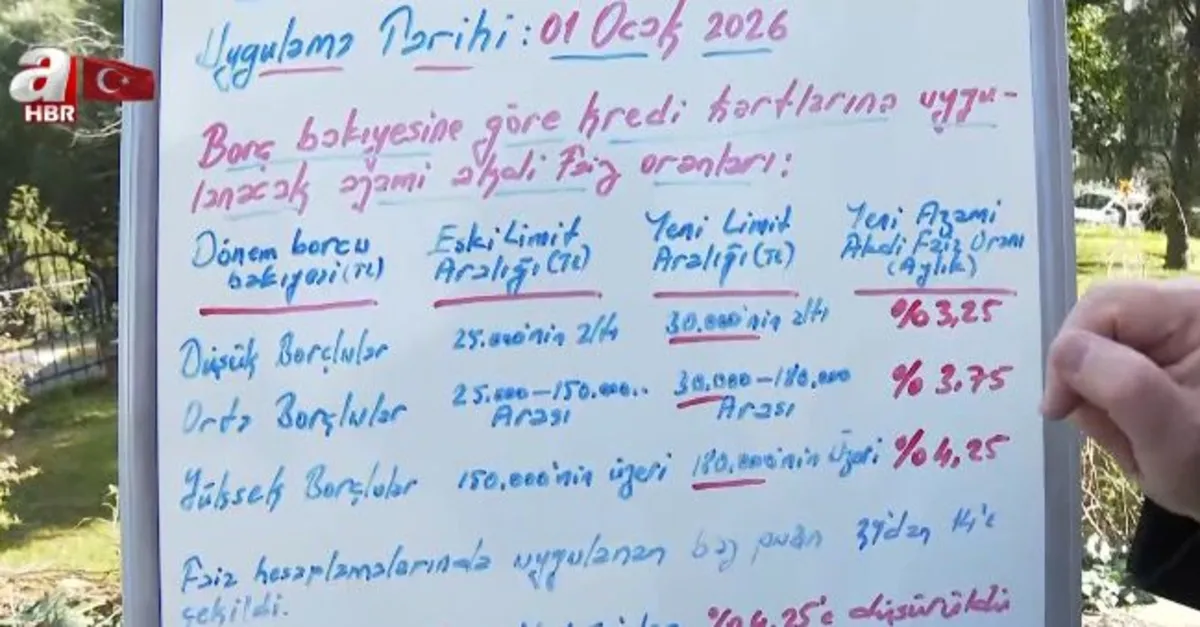 a
HBR
Uygulama Tarihi: 01 Ocak 2026
Borç bakiyesine göre kredi kartlarına uygu-
lanacak azami akdi faiz oranları:
Dönem borcu bakiyesi (TL)
Eski Limit Aralığı (TL)
Yeni Limit Aralığı (TL)
Yeni Azami Akdi Faiz Oranı (Aylık)
Düşük Borçlular 25.000'nin altı 30.000'nin altı %3,25
Orta Borçlular 25.000-150.000.. Arası 30.000-180.000 Arası %3.75
Yüksek Borçlular 150.000'nin üzeri 180.000'nin üzeri %4,25
Faiz hesaplamalarında uygulanan baz puan
çekildi.
%4,25'e düşürüldü